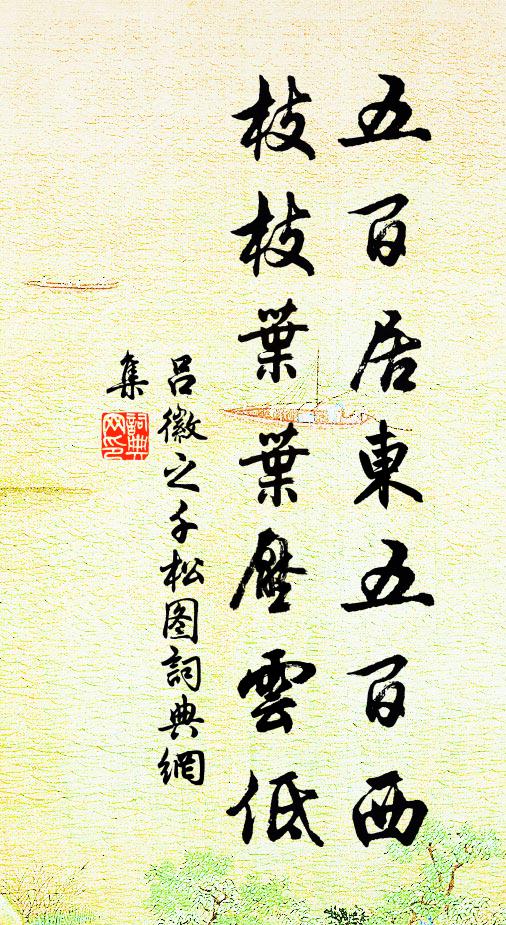 五百居東五百西
枝枝葉葉壓雲低
吕徽之千松图詞典網
集
詞典
网印